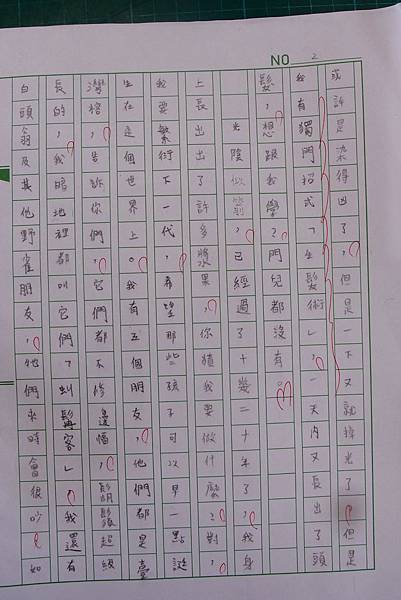 NO 2
或許是染得凶了，但是一下又就掉光了，但是
我有獨門招式「生髮術」，一天內又長出了頭
髮，想跟我學？門兒都沒有。
光陰似箭，已經過十幾二十年了，我身
上長出出了許多漿果，你猜我要做什麼？對，
我要繁衍下一代，希望那些孩子可以早一點誕
生在這個世界上。我有五個朋友，他們都是臺
灣榕，告訴你們，它們都不修邊幅，鬍鬚超級
長的，我暗地裡都叫它們「虯髯客」，我還有
白頭翁及其他野雀朋友，他們來時會很吵，如